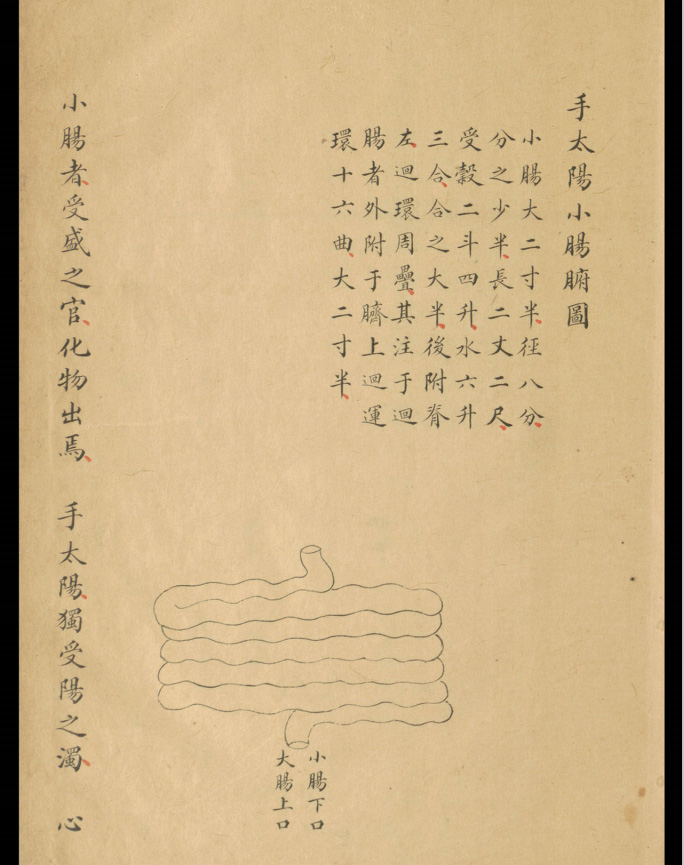 手太陽小腸腑圖
小腸大二寸半徑八分
分之少半長二丈二尺
受穀二斗四升水六升
三合合之大半後附脊
左迴環周疊其注于迴
腸者外附于臍上迴運
環十六曲大二寸半
小腸下口
大腸上口
小腸者受盛之官化物出焉 手太陽獨受陽之濁 心